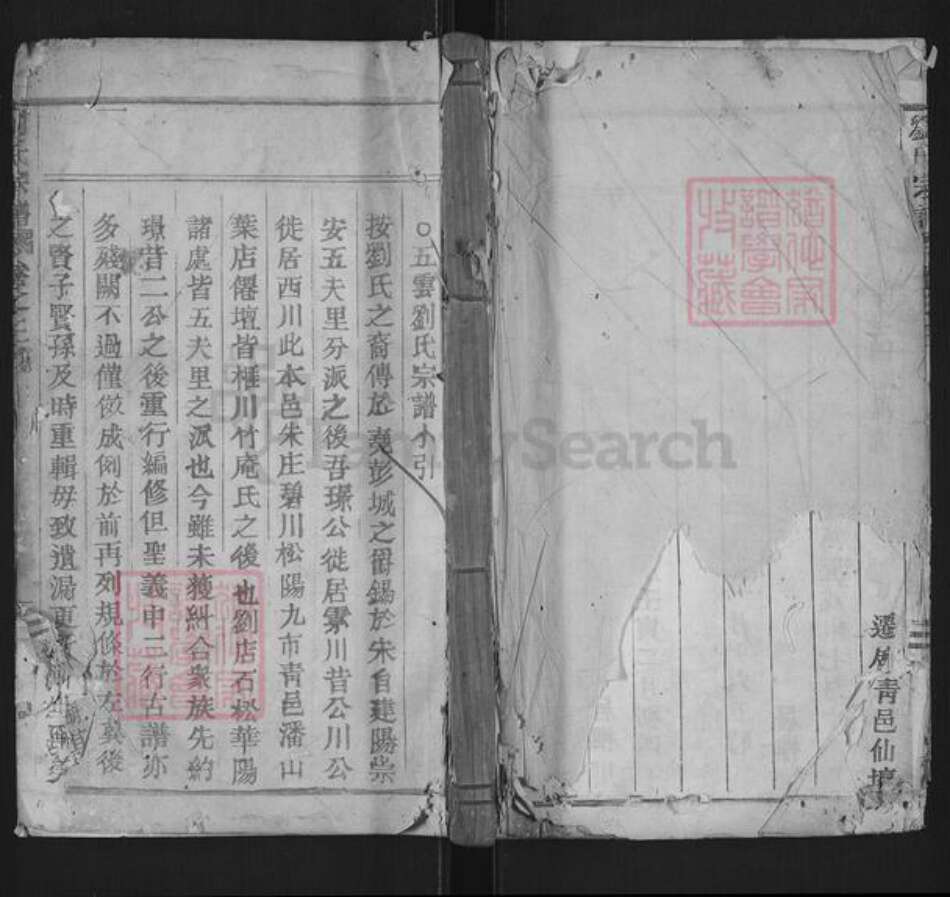 劉氏宗譜
遷居青邑仙壇
譜學會
收藏
○五雲劉氏宗譜小引
按劉氏之裔傳於堯彭城之爵錫於宋自建陽崇
安五夫里分派之後吾璟公徙居雲川昔公川公
徙居西川此本邑朱庄碧川松陽九市青邑潘山
葉店僊壇皆桱川竹庵氏之後也劉店石松華陽
諸處皆五夫里之派也今雖未獲糾合衆族先約
璟昔二公之後重行編修但聖義申二行古譜亦
多殘闕不過僅倣成例於前再列規條於左冀後
之賢子賢孫及時重輯毋致遺漏更
劉氏宗譜 卷之
FamilySearch